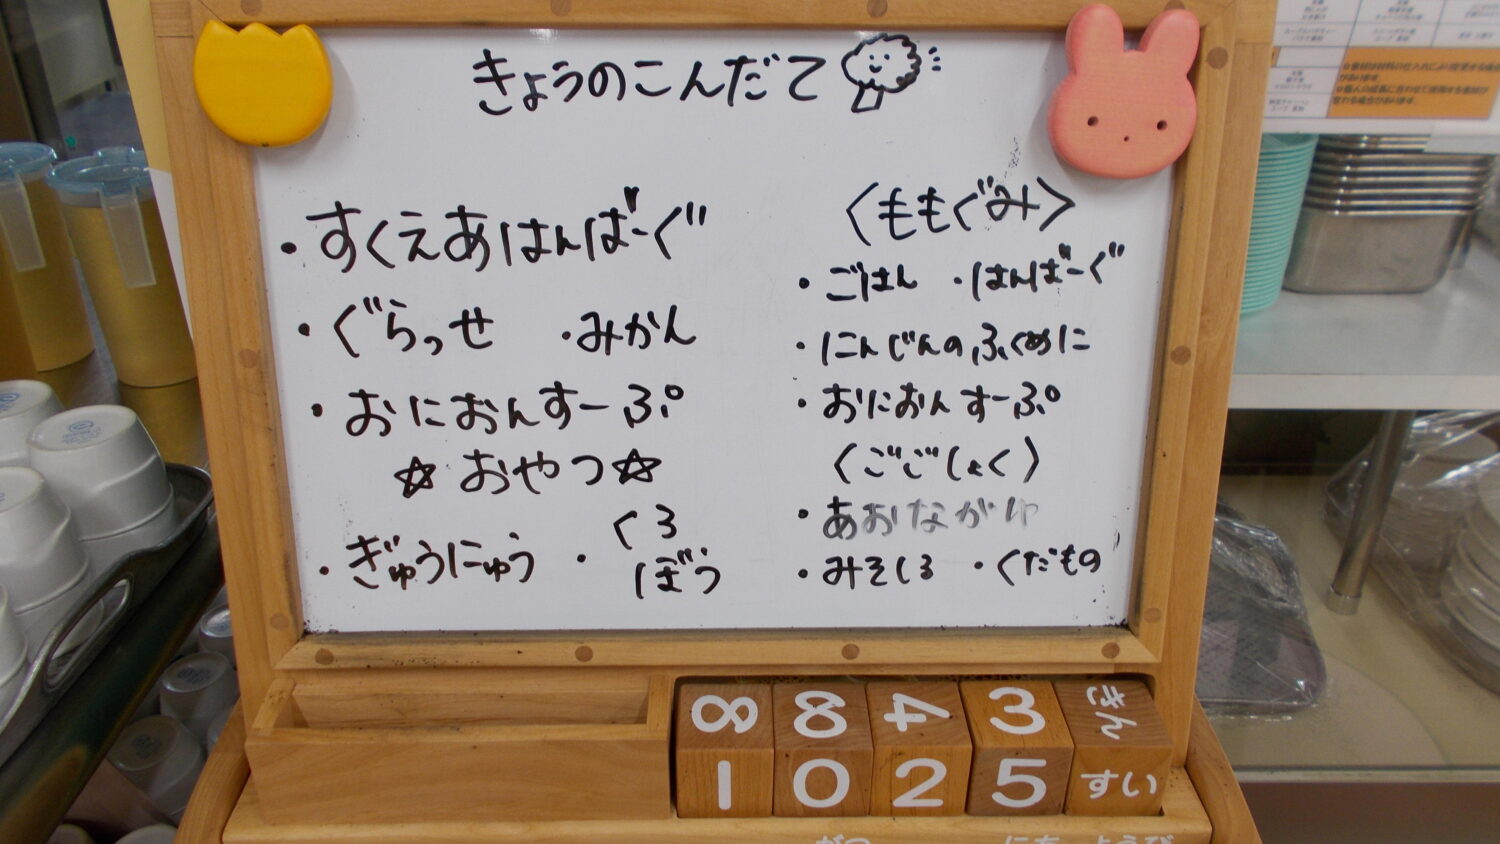 きょうのこんだて
・すくえあはんばーぐ
・ぐらっせ ・みかん
・おにおんすーぷ
☆おやつ☆
・ぎゅうにゅう ・くろ
ぼう
〈ももぐみ〉
・ごはん ・はんばーぐ
・にんじんのふくめに
・おにおんすーぷ
〈ごごしょく〉
・あおながゆ
・みそしる ・くだもの
8 8 4 3 きん
1 0 2 5 すい
がつ にち ようび